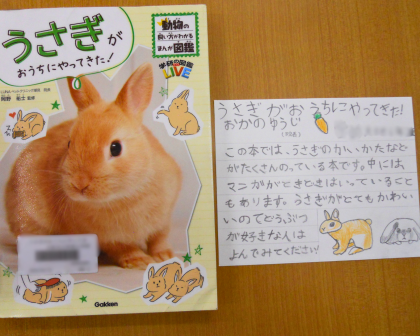 うさぎが
おうちにやってきた!
動物の
飼い方がわかる
まんが図鑑
学研の図鑑
LIVE
岡野 祐士 監修
Gakken
うさぎがおうちにやってきた!
おかのゆうじ
この本では、うさぎのかいかたなど
がたくさんのっている本です。中には、
マンガがときどきはいっていること
もあります。うさぎがとてもかわい
いのでどうぶつ
が好きな人は
よんでみてください!